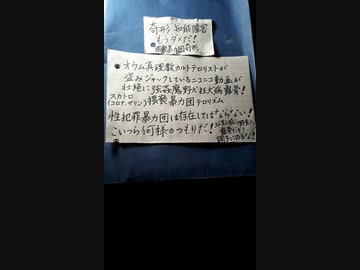 奇形 知能障害
もうダメだ！
オウム真理教カルトテロリストが
盗みジャックしているニコニコ動画が
壮絶に強姦魔野犬狂犬病露骨！
スカトロ
（コロナ、サリン）猥褻暴力団テロリズム
性犯罪暴力団は存在してはならない！
こいつら何様のつもりだ！